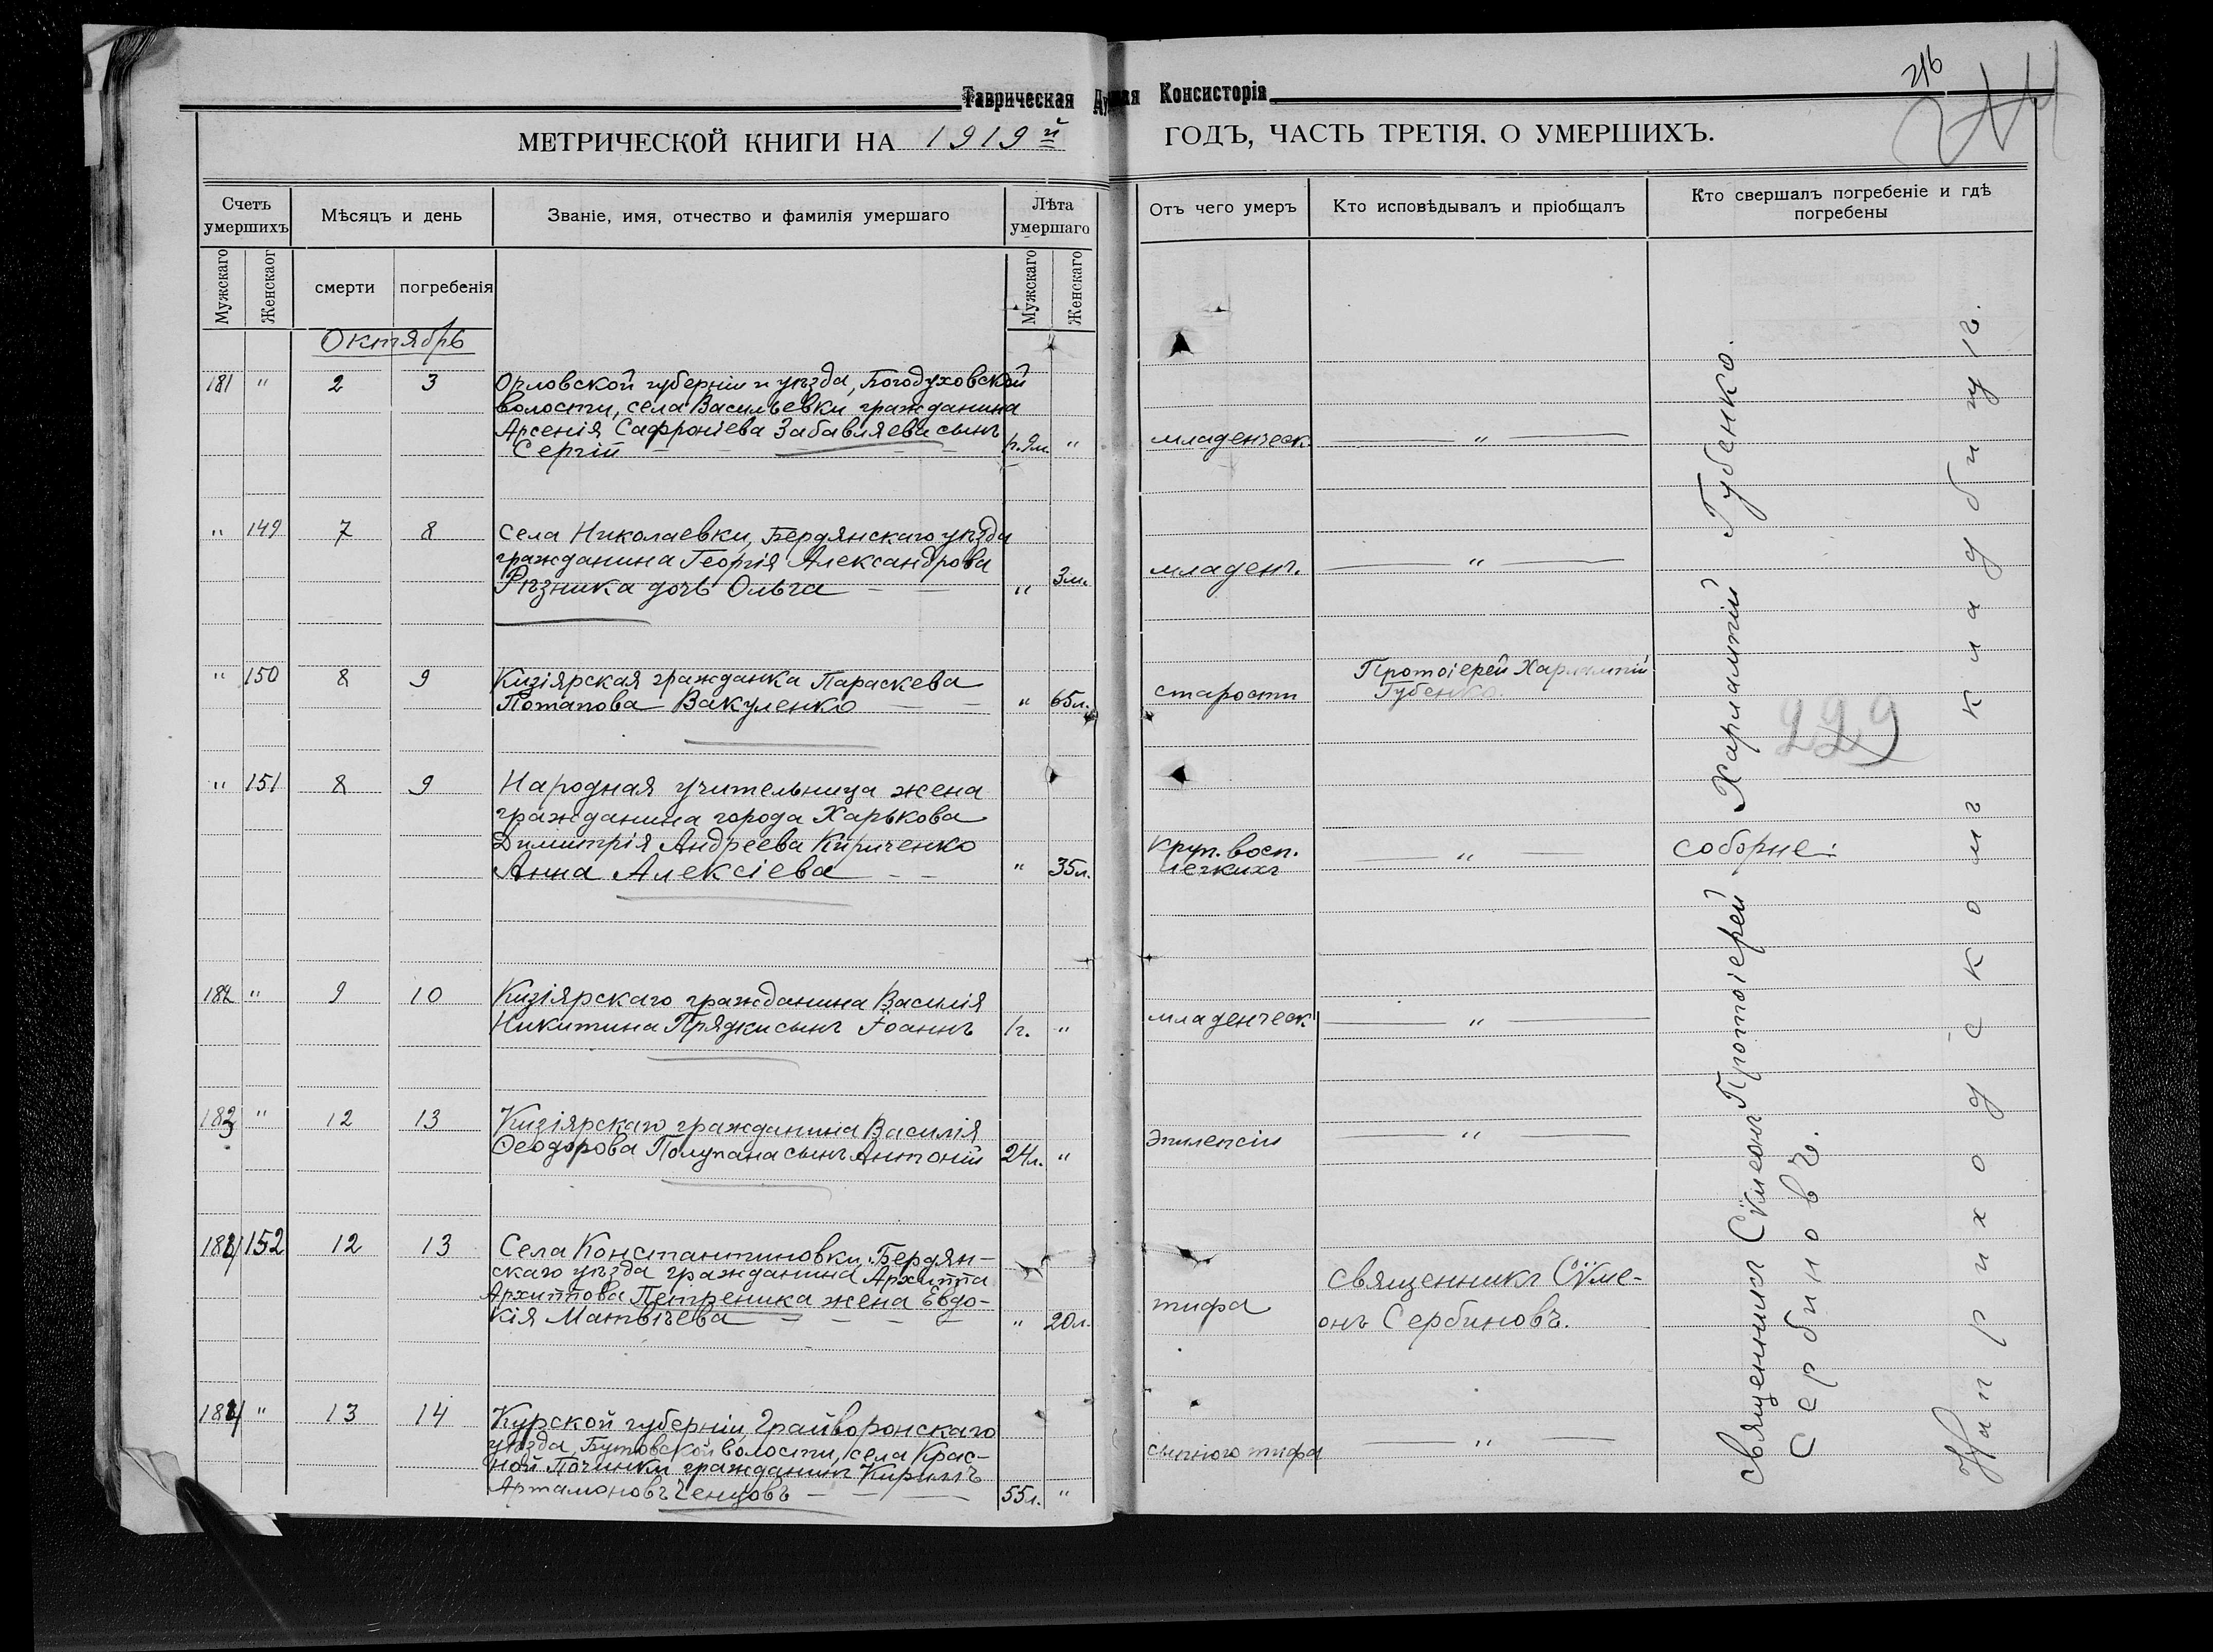 216
Таврическая Ду ная Консисторія
МЕТРИЧЕСКОЙ КНИГИ НА 1919й ГОДЪ, ЧАСТЬ ТРЕТІЯ. О УМЕРШИХЪ.
Счетъ умершихъ
Мѣсяцъ и день
Званіе, имя, отчество и фамилія умершаго
Лѣта умершаго
Отъ чего умеръ
Кто исповѣдывалъ и пріобщалъ
Кто свершалъ погребеніе и гдѣ погребены
Мужскаго
Женскаог
смерти
погребенія
Мужскаго
Женскаго
Октябрь
181 " 2 3 Орловской губерніи и уѣзда, Богодуховской
волости, села Васильевки гражданина
Арсенія Сафроніева Забавляева сынъ
Сергій " младенческ. "
" 149 7 8 Села Николаевки, Бердянскаго уѣзда
гражданина Георгія Александрова
Рѣзника дочь Ольга " 3м. младенч. "
" 150 8 9 Кизіярская гражданка Параскева
Потапова Вакуленко " 65л. старости Протоіерей Харлампій
Губенко.
" 151 8 9 Народная учительница жена
гражданина города Харькова
Димитрія Андреева Кириченко
Анна Алексіева " 35л. круп. восп.
легкихъ " соборне:
182 " 9 10 Кизіярскаго гражданина Василія
Никитина Прядки сынъ Іоаннъ 1г. " младенческ. "
183 " 12 13 Кизіярскаго гражданина Василія
Ѳеодорова Полупана сынъ Антоній 24л. " эпилепсіи "
152 12 13 Села Константиновки, Бердян-
скаго уѣзда гражданина Архиппа
Архиппова Петреника жена Евдо-
кія Матвѣева " 20л. тифа Священникъ Сѵме-
онъ Сербиновъ.
184 " 13 14 Курской губерніи, Грайворонскаго
уѣзда, Бутовской волости, села Крас-
ной Починки гражданинъ Кириллъ
Артамоновъ Ченцовъ 55л. " сыпного тифа "
Священникъ Сѵмеонъ Протоіерей Харлампій Губенко.
Сербиновъ.
229
На приходскомъ кладбищѣ.